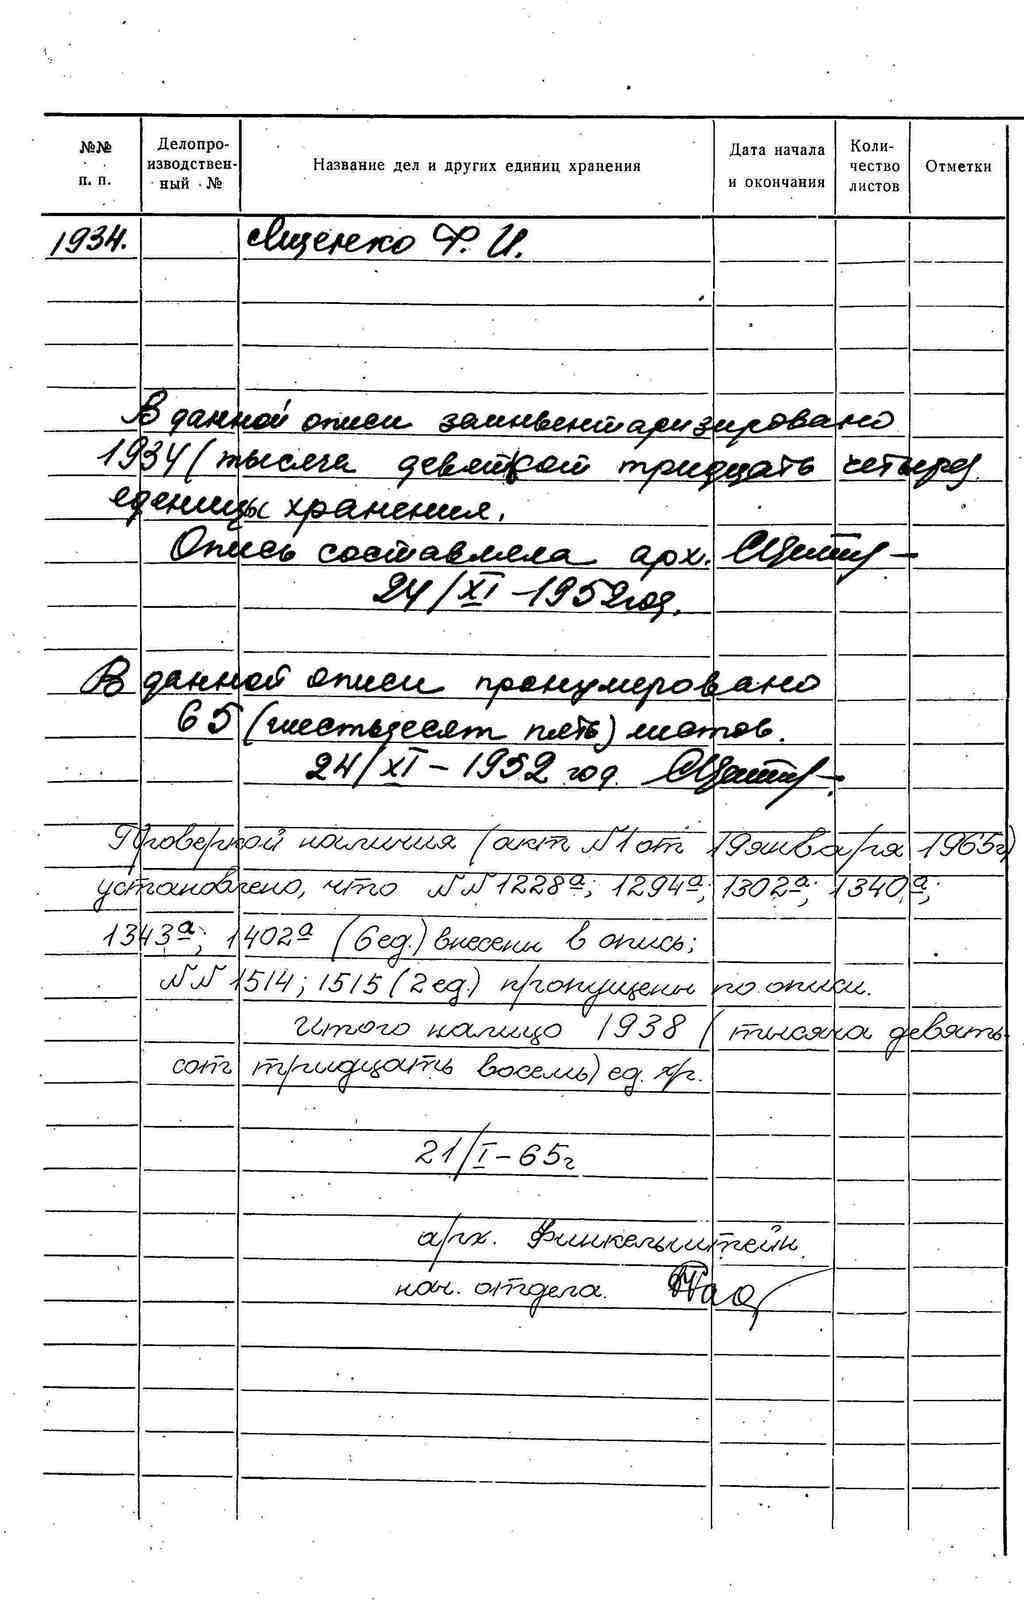 №№ п. п. Делопроизводствен-ный № Название дел и других единиц хранения Дата начала и окончания Коли-чество листов Отметки
1934. Ященко Ф. И.
В данной описи заинвентаризировано
1934 (тысяча девятсот тридцать четыре)
еденицы хранения.
Опись составляла арх.
24/XI-1952 год.
В данной описи пронумеровано
65 (шестьдесят пять) листов.
24/XI-1952 год.
Проверкой наличия (акт №1 от 19 января 1965г)
установлено, что №№ 1228а; 1294а; 1302а; 1340а;
1343а; 1402а (6 ед.) внесены в опись;
№№ 1514; 1515 (2 ед.) пропущены по описи.
Итого налицо 1938 (тысяча девять-
сот тридцать восемь) ед. хр.
21/I-65г
арх. Финкельштейн
нач. отдела.